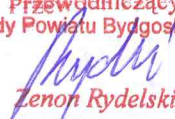 Przewodniczący
dy Powiatu Bydgos
Zenon Rydelski